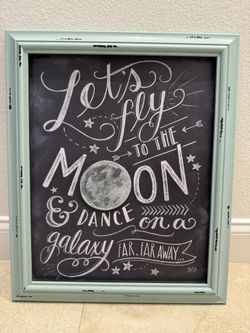 Let's
fly
TO THE
MOON
& DANCE on a
galaxy FAR, FAR AWAY.